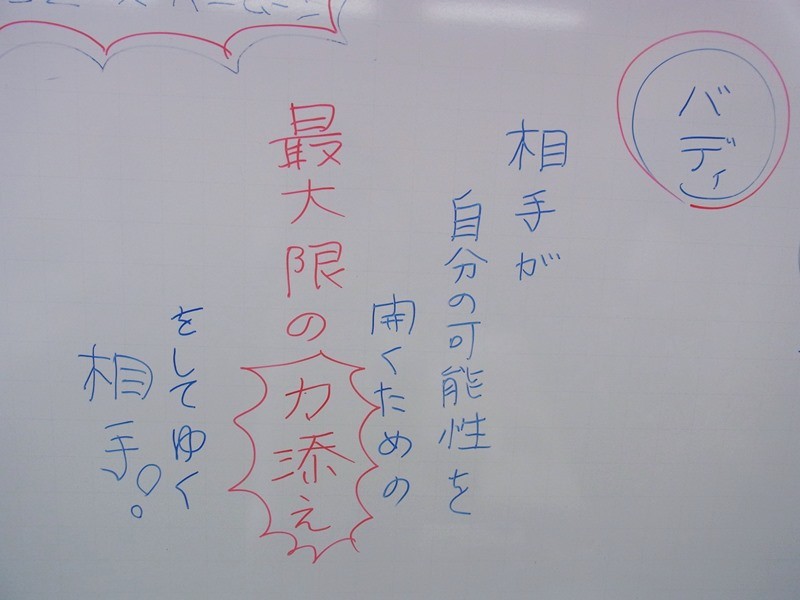 バディ
相手が
自分の可能性を
開くための
最大限の力添え
をしてゆく
相手!